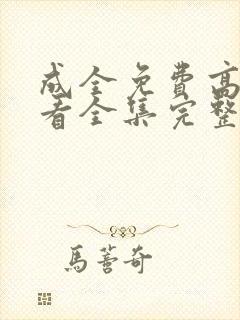 成全免费高
看全集完整
馬蓍奇